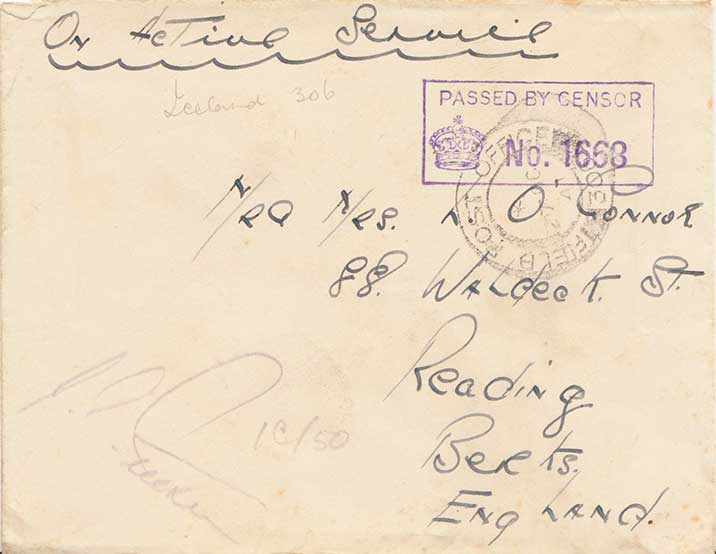 On Active Service
Iceland 306
PASSED BY CENSOR
No. 1668
FIELD POST OFFICE
Mr & Mrs. O'Connor
88. Waldeck. St.
Reading
Berks.
England.
1C/50